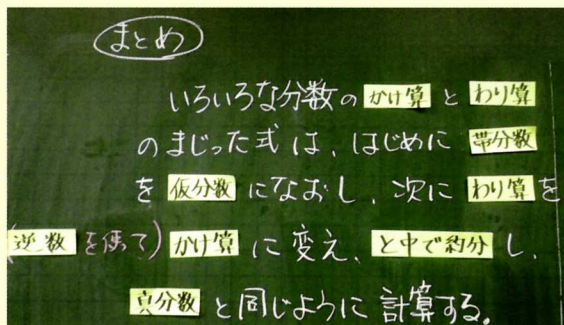 まとめ
いろいろな分数の かけ算 と わり算
のまじった式は、はじめに 帯分数
を 仮分数 になおし、次に わり算 を
(逆数 を使って) かけ算 に変え、と中で約分 し、
真分数 と同じように 計算する。